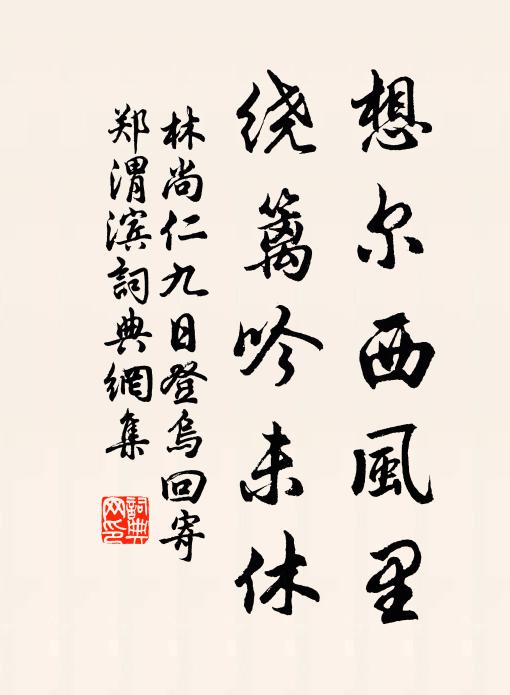 想尔西風里
绕籬吟未休
林尚仁九日登乌回寄
郑渭滨詞典網集
詞典网印